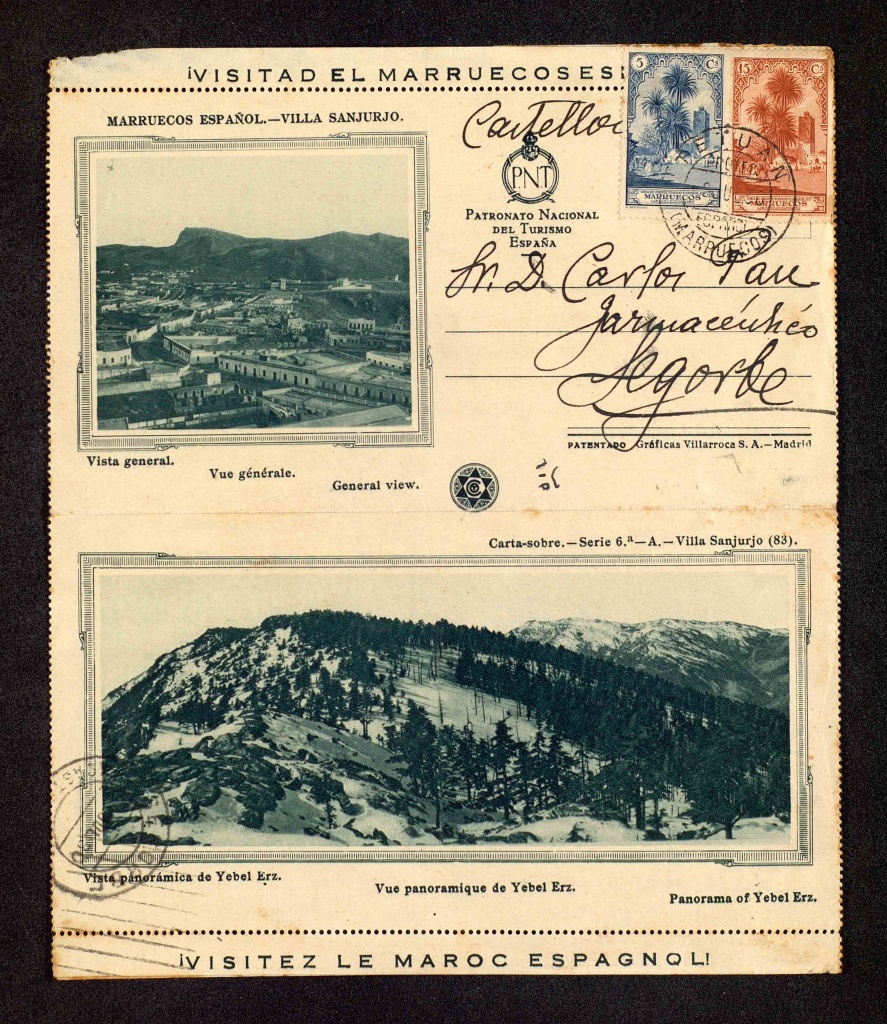 ¡VISITAD EL MARRUECOS ES
MARRUECOS ESPAÑOL.—VILLA SANJURJO.
5 Cs
15 Cs
MARRUECOS
MARRUECOS
TETUAN
(MARRUECOS)
P.N.T
PATRONATO NACIONAL
DEL TURISMO
ESPAÑA
Sr. D. Carlos Pau
Farmacéutico
Segorbe
PATENTADO Gráficas Villarroca S. A.—Madrid
Vista general.
Vue générale.
General view.
Carta-sobre.—Serie 6.ª—A.—Villa Sanjurjo (83).
Vista panorámica de Yebel Erz.
Vue panoramique de Yebel Erz.
Panorama of Yebel Erz.
¡VISITEZ LE MAROC ESPAGNOL!